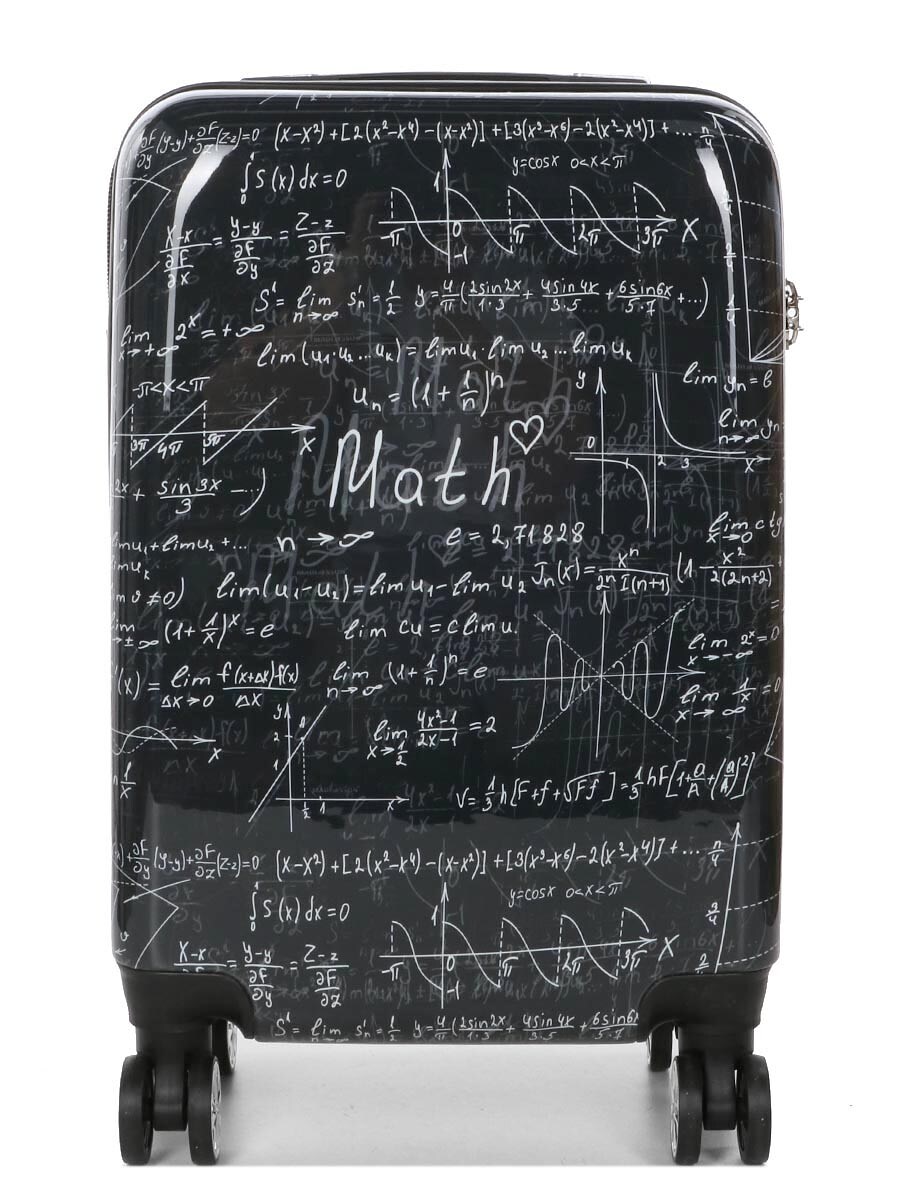 ∂F/∂y (y-y)+∂F/∂z(z-z)=0 (x-x²)+[2(x²-x⁴)-(x-x²)]+[3(x³-x⁶)-2(x²-x⁴)]+... π/4
∫₀¹ S(x)dx=0 y=cosx 0<x<π
1
X-x/∂F/∂x = y-y/∂F/∂y = Z-z/∂F/∂z
-π 0 π 2π 3π X
-1
S'= lim n→∞ s'n = 1/2 y=4/π(2sin2x/1·3 + 4sin4x/3·5 + 6sin6x/5·7 +...)
lim x→+∞ 2ˣ=+∞
lim(u₁·u₂...uₖ)=limu₁·limu₂...limuₖ
-π<x<π uₙ=(1+1/n)ⁿ y lim yₙ=b
3π 4π 5π X 0 1 2 3 X lim n→∞ yₙ
Math♡
2x + sin3x/3 -...)
limu₁+limu₂+... n→∞ e=2,71828 lim x→0 ctg
limuₖ
≠0) lim(u₁-u₂)=limu₁-limu₂ Jₙ(x)=xⁿ/2ⁿI(n+1)(1-x²/2(2n+2)+
lim →±∞ (1+1/x)ˣ=e lim cu=c lim u. lim x→-∞ 2ˣ=0
'(x)=lim Δx→0 f(x+Δx)f(x)/Δx lim n→∞ (1+1/n)ⁿ=e lim x→∞ 1/x=0
y
2 1
1 1/2 1 x
lim x→1/2 4x²-1/2x-1 =2
x
V=1/3h[F+f+√Ff]=1/3hF[1+a/A+(a/A)²]
∂F/∂y (y-y)+∂F/∂z(z-z)=0 (x-x²)+[2(x²-x⁴)-(x-x²)]+[3(x³-x⁶)-2(x²-x⁴)]+... π/4
∫₀¹ S(x)dx=0 y=cosx 0<x<π
1 3/4
X-x = y-y/∂F/∂y = Z-z/∂F/∂z
-π 0 π 2π 3π X
-1
S'= lim n→∞ s'n = 1/2 y=4/π(2sin2x/1·3 + 4sin4x/3·5 + 6sin6x/5·7